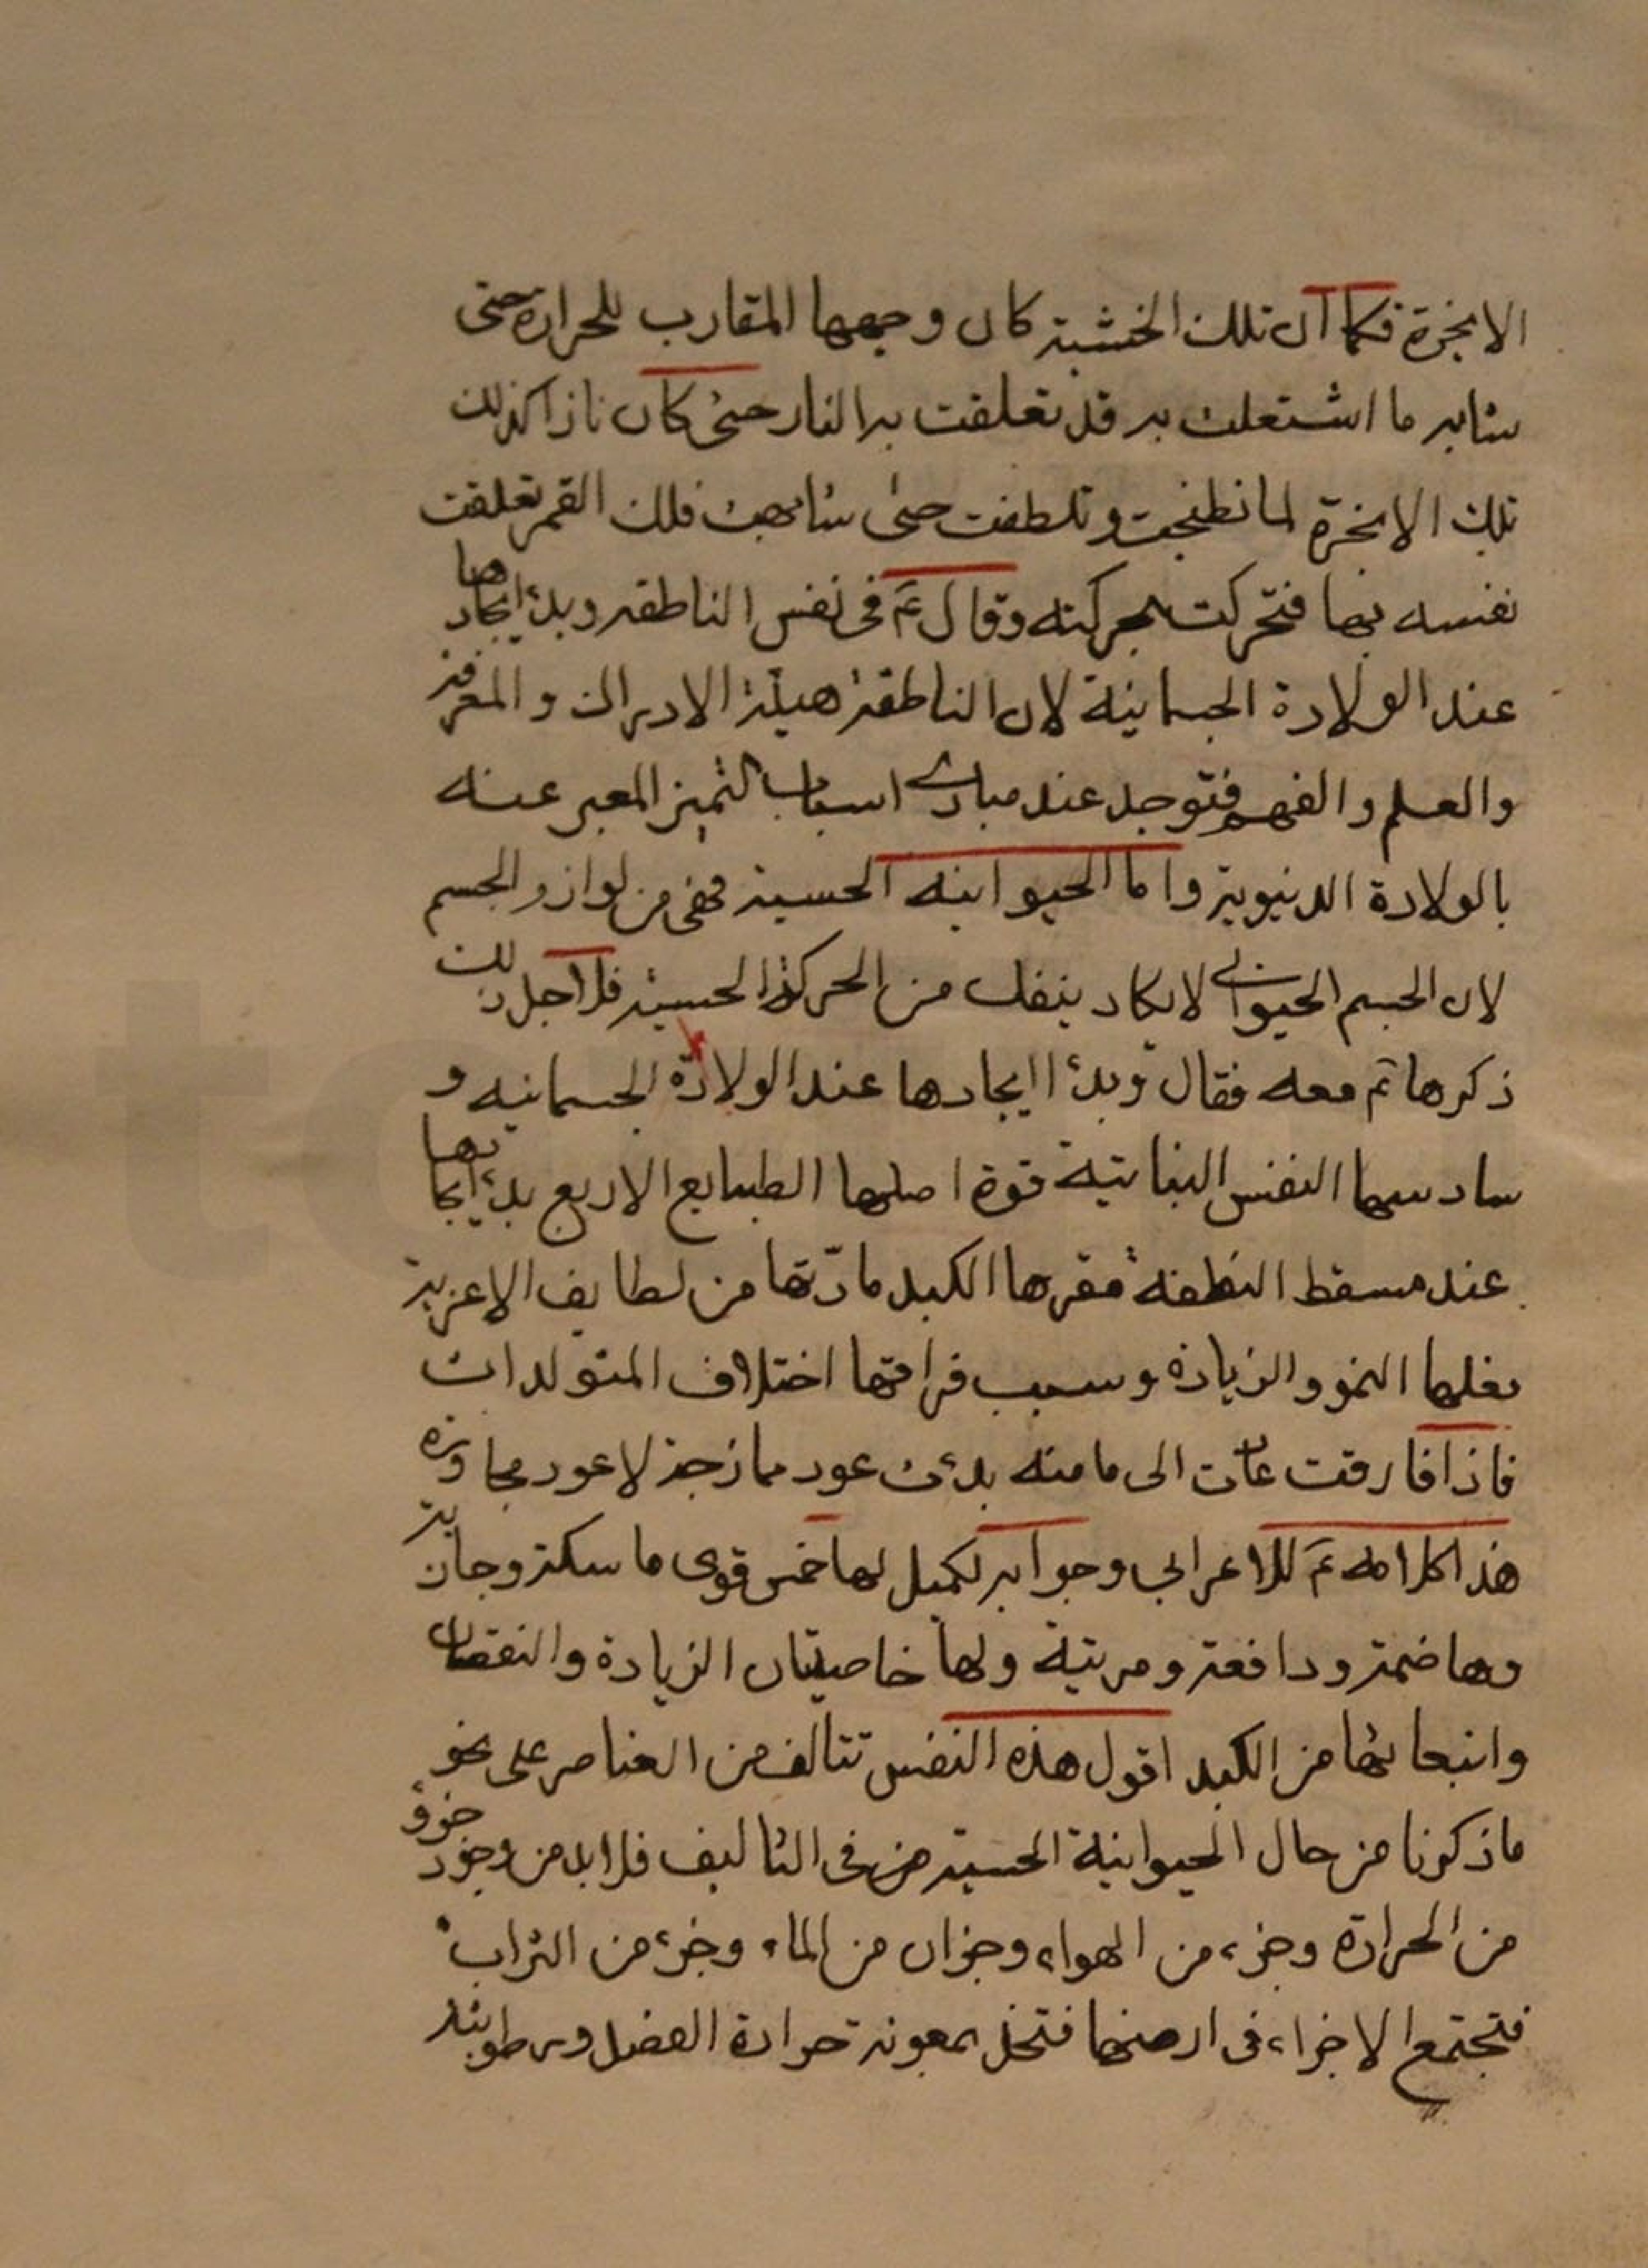 الابخرة فكما ان تلك الخشبة كان وجهها المقارب للحرارة حتى
شابه ما اشتعلت به قد تعلقت به النار حتى كان نارا كذلك
تلك الابخرة لما نطنجت وتلطفت حتى شابهت فلك القمر تعلقت
نفسه بها فتحركت بحركته وقال ع في نفس الناطقه وبدء ايجادها
عند الولادة الجسمانية لان الناطقة هيئة الادراك والمعرفة
والعلم والفهم فتوجد عند مبادي اسباب التميز المعبر عنه
بالولادة الدنيوية واما الحيوانيه الحسية فهى من لوازم الجسم
لان الجسم الحيواني لا يكاد ينفك من الحركة الحسية فلاجل ذلك
ذكرها ثم معه فقال وبدء ايجادها عند الولادة الجسمانيه و
سادسها النفس النباتية قوة اصلها الطبايع الاربع بدء ايجادها
عند مسقط النطفة مقرها الكبد مادتها من لطايف الاغزية
فعلها النمو والزيادة وسبب فراقها اختلاف المتولدات
فاذا فارقت عادت الى ما منه بدئت عود ممازجة لا عود مجاورة
هذا كلامه ع للاعرابي وجوابه لكميل لها خمس قوى ماسكة وجاذبة
وهاضمة ودافعة ومربية ولها خاصيتان الزيادة والنقصان
وانبعاثها من الكبد اقول هذه النفس تتالف من العناصر على نحو
ما ذكرنا من حال الحيوانية الحسية من في التاليف فلابد من وجود جزؤ
من الحرارة وجزء من الهواء وجزان من الماء وجزء من التراب
فتجتمع الاجزاء في ارضها فتحل بمعونة حرارة الفصل ورطوبته